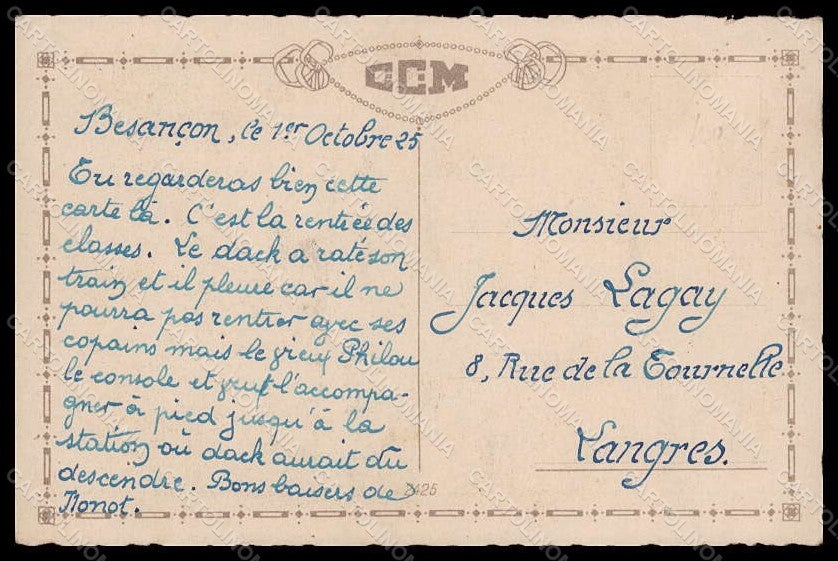 CCM
Besançon, le 1er Octobre 25
Tu regarderas bien cette
carte là. C'est la rentrée des
classes. Le dack a raté son
train et il pleure car il ne
pourra pas rentrer avec ses
copains mais le vieux Philou
le console et veut l'accompa-
gner à pied jusqu'à la
station où dack aurait du
descendre. Bons baisers de
Nonot.
2425
Monsieur
Jacques Lagay
8, Rue de la Tournelle
Langres.
CARTOLINOMANIA